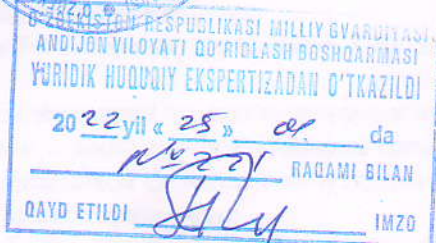 O'ZBEKISTON RESPUBLIKASI MILLIY GVARDIYASI
ANDIJON VILOYATI QO'RIQLASH BOSHQARMASI
YURIDIK HUQUQIY EKSPERTIZADAN O'TKAZILDI
20 22 yil « 25 » da
RAQAMI BILAN
QAYD ETILDI IMZO